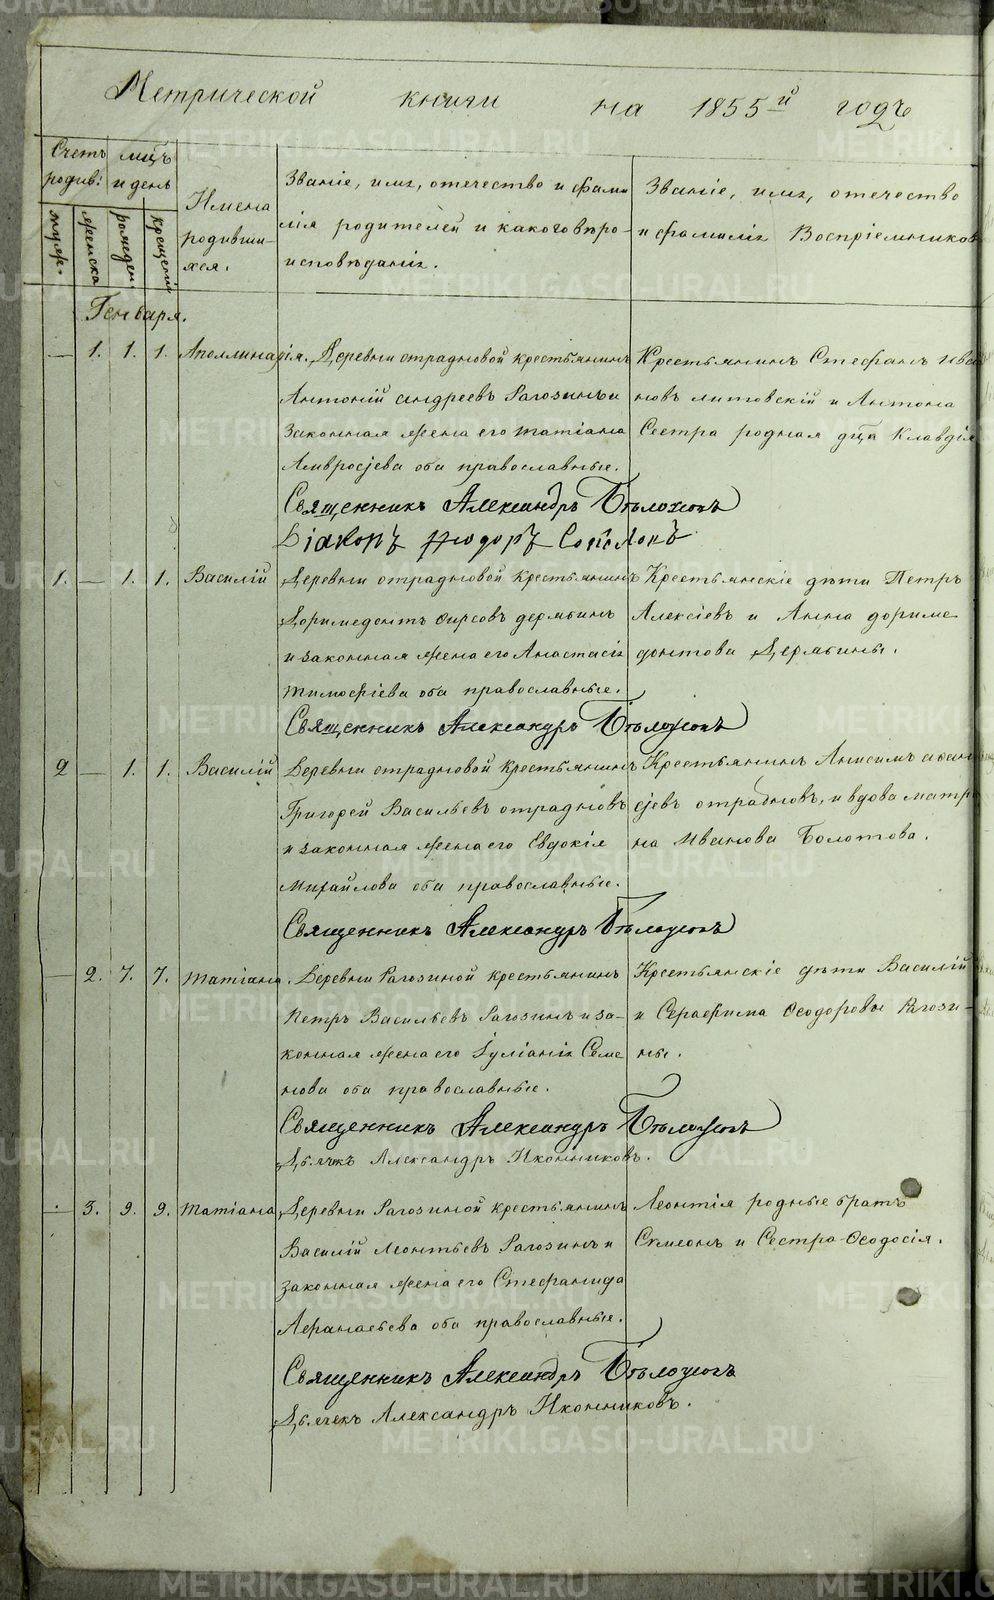 Метрической книги на 1855й годъ
Счетъ родив:
мѣцъ и день
Имена родивши-хся.
Званіе, имя, отечество и фами
лія родителей и какого вѣро-
исповѣданія.
Званіе, имя, отечество
и фамилія Воспріемниковъ
муж.
женска
рожден
крещенія
Генваря.
— 1. 1. 1. Аполлинарія. Деревни отрадновой крестьянинъ
Антоній андреевъ Рагозинъ и
Законная жена его татіана
Амвросіева оба православные.
Крестьянинъ Стефанъ Ива
новъ литовскій и Антона
Сестра родная дца Клавдія
Священникъ Александръ Бѣлоусовъ
Діаконъ Ѳеодоръ Соколовъ
1. — 1. 1. Василій Деревни отрадновой крестьянинъ
Доримедонтъ Фирсовъ дерябинъ
и законная жена его Анастасія
тимофѣева оба православные.
Крестьянскіе дѣти Петръ
Алексіевъ и Анна дориме
донтова Дерябины.
Священникъ Александръ Бѣлоусовъ
2 — 1. 1. Василій Деревни отрадновой крестьянинъ
Григорей Васильевъ отрадновъ
и законная жена его Евдокія
Михайлова оба православные.
Крестьянинъ Анисимъ аѳана
сіевъ отрадновъ, и вдова матре
на Иванова Болотова.
Священникъ Александръ Бѣлоусовъ
— 2. 7. 7. татіана. Деревни Рагозиной крестьянинъ
Петръ Васильевъ Рагозинъ и за-
конная жена его Іуліанія Семе
нова оба православные.
Крестьянскіе дѣти Василій
и Серафима Ѳеодоровы Рагози-
ны.
Священникъ Александръ Бѣлоусовъ
Дьячекъ Александръ Иконниковъ.
— 3. 9. 9. татіана Деревни Рагозиной крестьянинъ
Василій Леонтьевъ Рагозинъ и
законная жена его Стефанида
Афанасьева оба православные.
Леонтія родные братъ
Симеонъ и Сестра Ѳеодосія.
Священникъ Александръ Бѣлоусовъ
Дьячекъ Александръ Иконниковъ.
METRIKI.GASO-URAL.RU